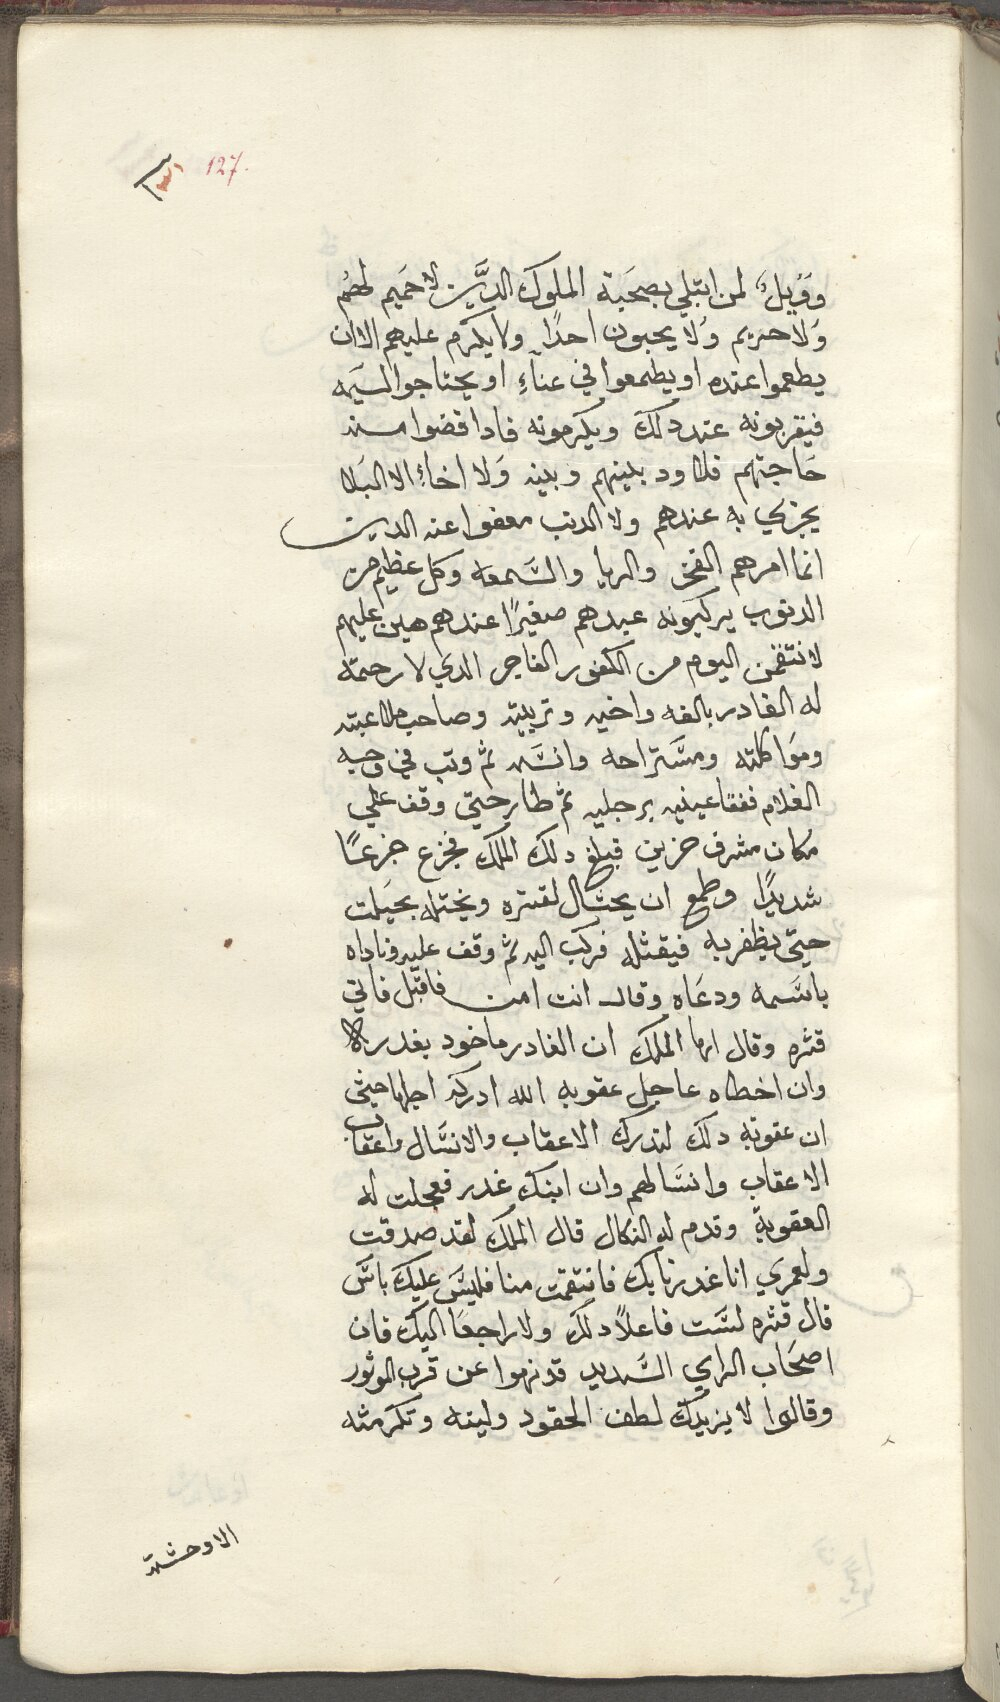 127.
ووَيلٌ لمن ابتلي بصحَبة الملوك الدَّين لا حَميم لهُم
وَلا حريم وَلا يحبون احدًا ولا يكرم عليهم الا ان
يطعموا عنده او يطمعوا في عناءٍ او يحتاجوا اليه
فيقربونه عند دلك ويكرمونه فادا قضوا منه
حَاجتهم فلا ود بلينهم وبينه وَلا اخاءٍ الا البَلا
يجزي به عندهم ولا الدنب معفوا عنه الدين
انما امرهم الفخر والريا والسَّمعه وكل عظيم من
الدنوب يركبونه عبدهم صغيرًا عندهم هين عليهم
لانتقمن اليوم من الكفور الفاجر الدي لا رحمة
له الغادر بالفه واخيه وتربيته وصاحب ملاعبته
ومَوَاكلته ومسَّتراحه وانسَّه ثم وتب في وجه
الغلام ففقا عينيه برجليه ثم طار حتي وقف علي
مكان مشرف حزين فبلغ دلك الملك فجزع جزعًا
شديدًا وطمع ان يحتال لقنزه ويختله بحيَلت
حيتي يظفر به فيقتله فركب اليه ثم وقف عليه وناداه
باسَّمه ودعَاه وقال انت امن فاقبل فاتي
قنزه وقال ايها الملك ان الغادر ماخود بغدره
وان اخطاه عاجل عقوبه الله ادركه اجلها حيتي
ان عقوبة دلك لتدرك الاعقاب والانسَّال واعقاب
الاعقاب وانسَّالهم وان ابنك غدر فعجلت له
العقوبة وقدم له النكال قال الملك لقد صدقت
ولعمري انا غدرنا بك فانتقمت منا فليسَّ عليك باسَّ
قال قنزه لسَّت فاعلًا دلك ولا راجعَا اليك فان
اصحَاب الراي السَّديد قد نهوا عن قرب الموتور
وقالوا لا يزيدك لطف الحقود ولينه وتكرمته
الا وحشة